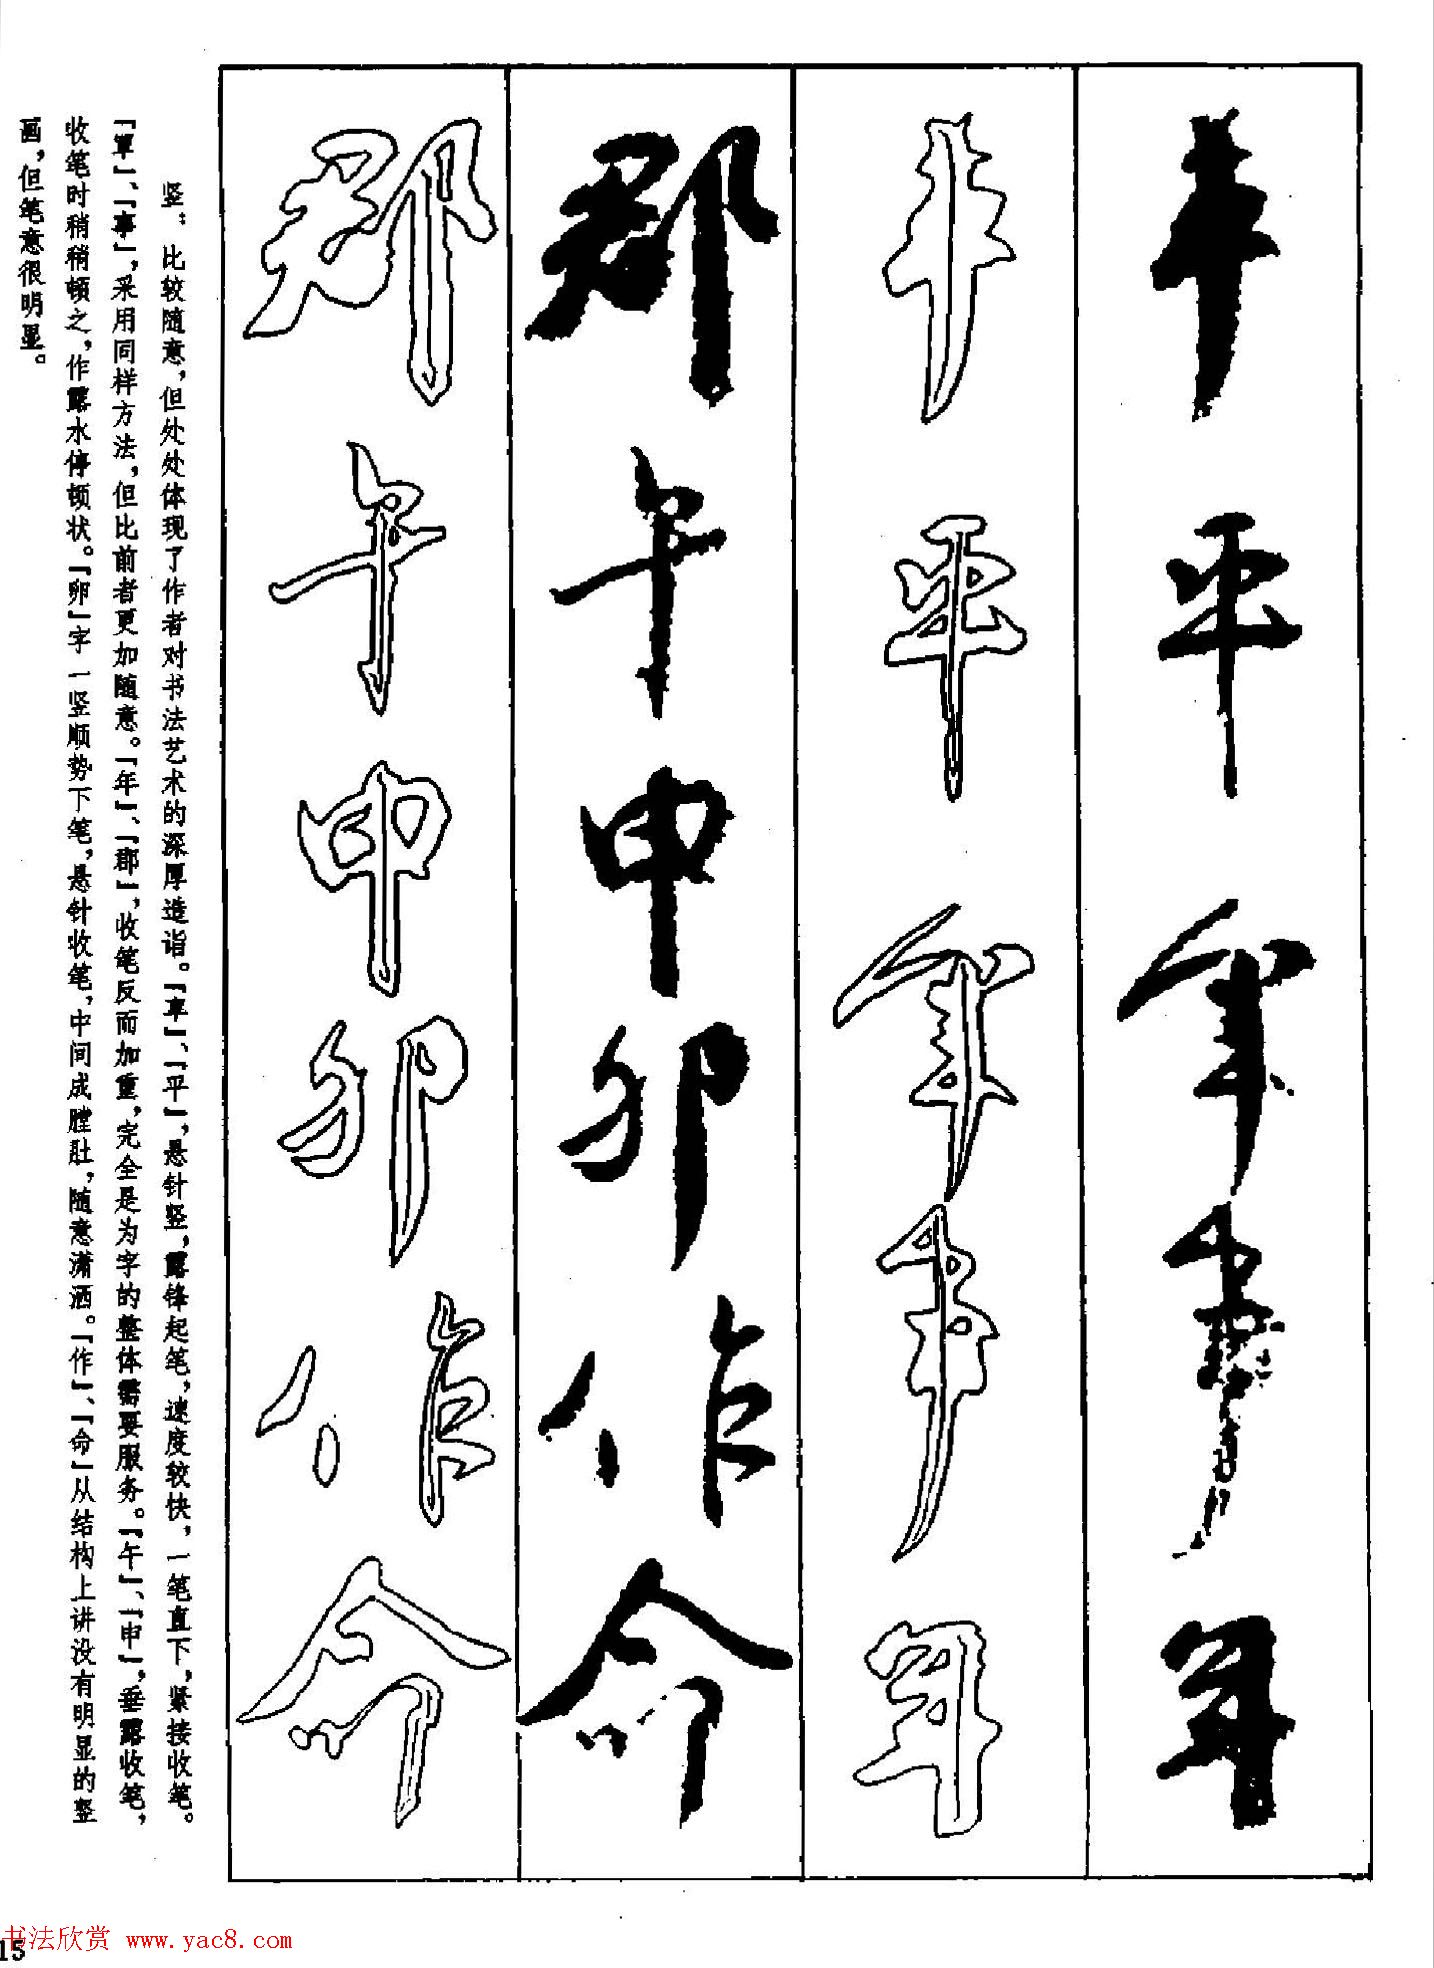 平 事 年
平 事 年
郡 午 申 卯 作 命
郡 午 申 卯 作 命
竖：比较随意，但处处体现了作者对书法艺术的深厚造诣。「」、「平」，悬针竖，露锋起笔，速度较快，一笔直下，紧接收笔。
「」、「事」，采用同样方法，但比前者更加随意。「年」、「郡」，收笔反而加重，完全是为字的整体需要服务。「午」、「申」，垂露收笔，
收笔时稍稍顿之，作露水停顿状。「卯」字一竖顺势下笔，悬针收笔，中间成膛肚，随意潇洒。「作」、「命」从结构上讲没有明显的竖
画，但笔意很明显。
书法欣赏 www.yac8.com
15